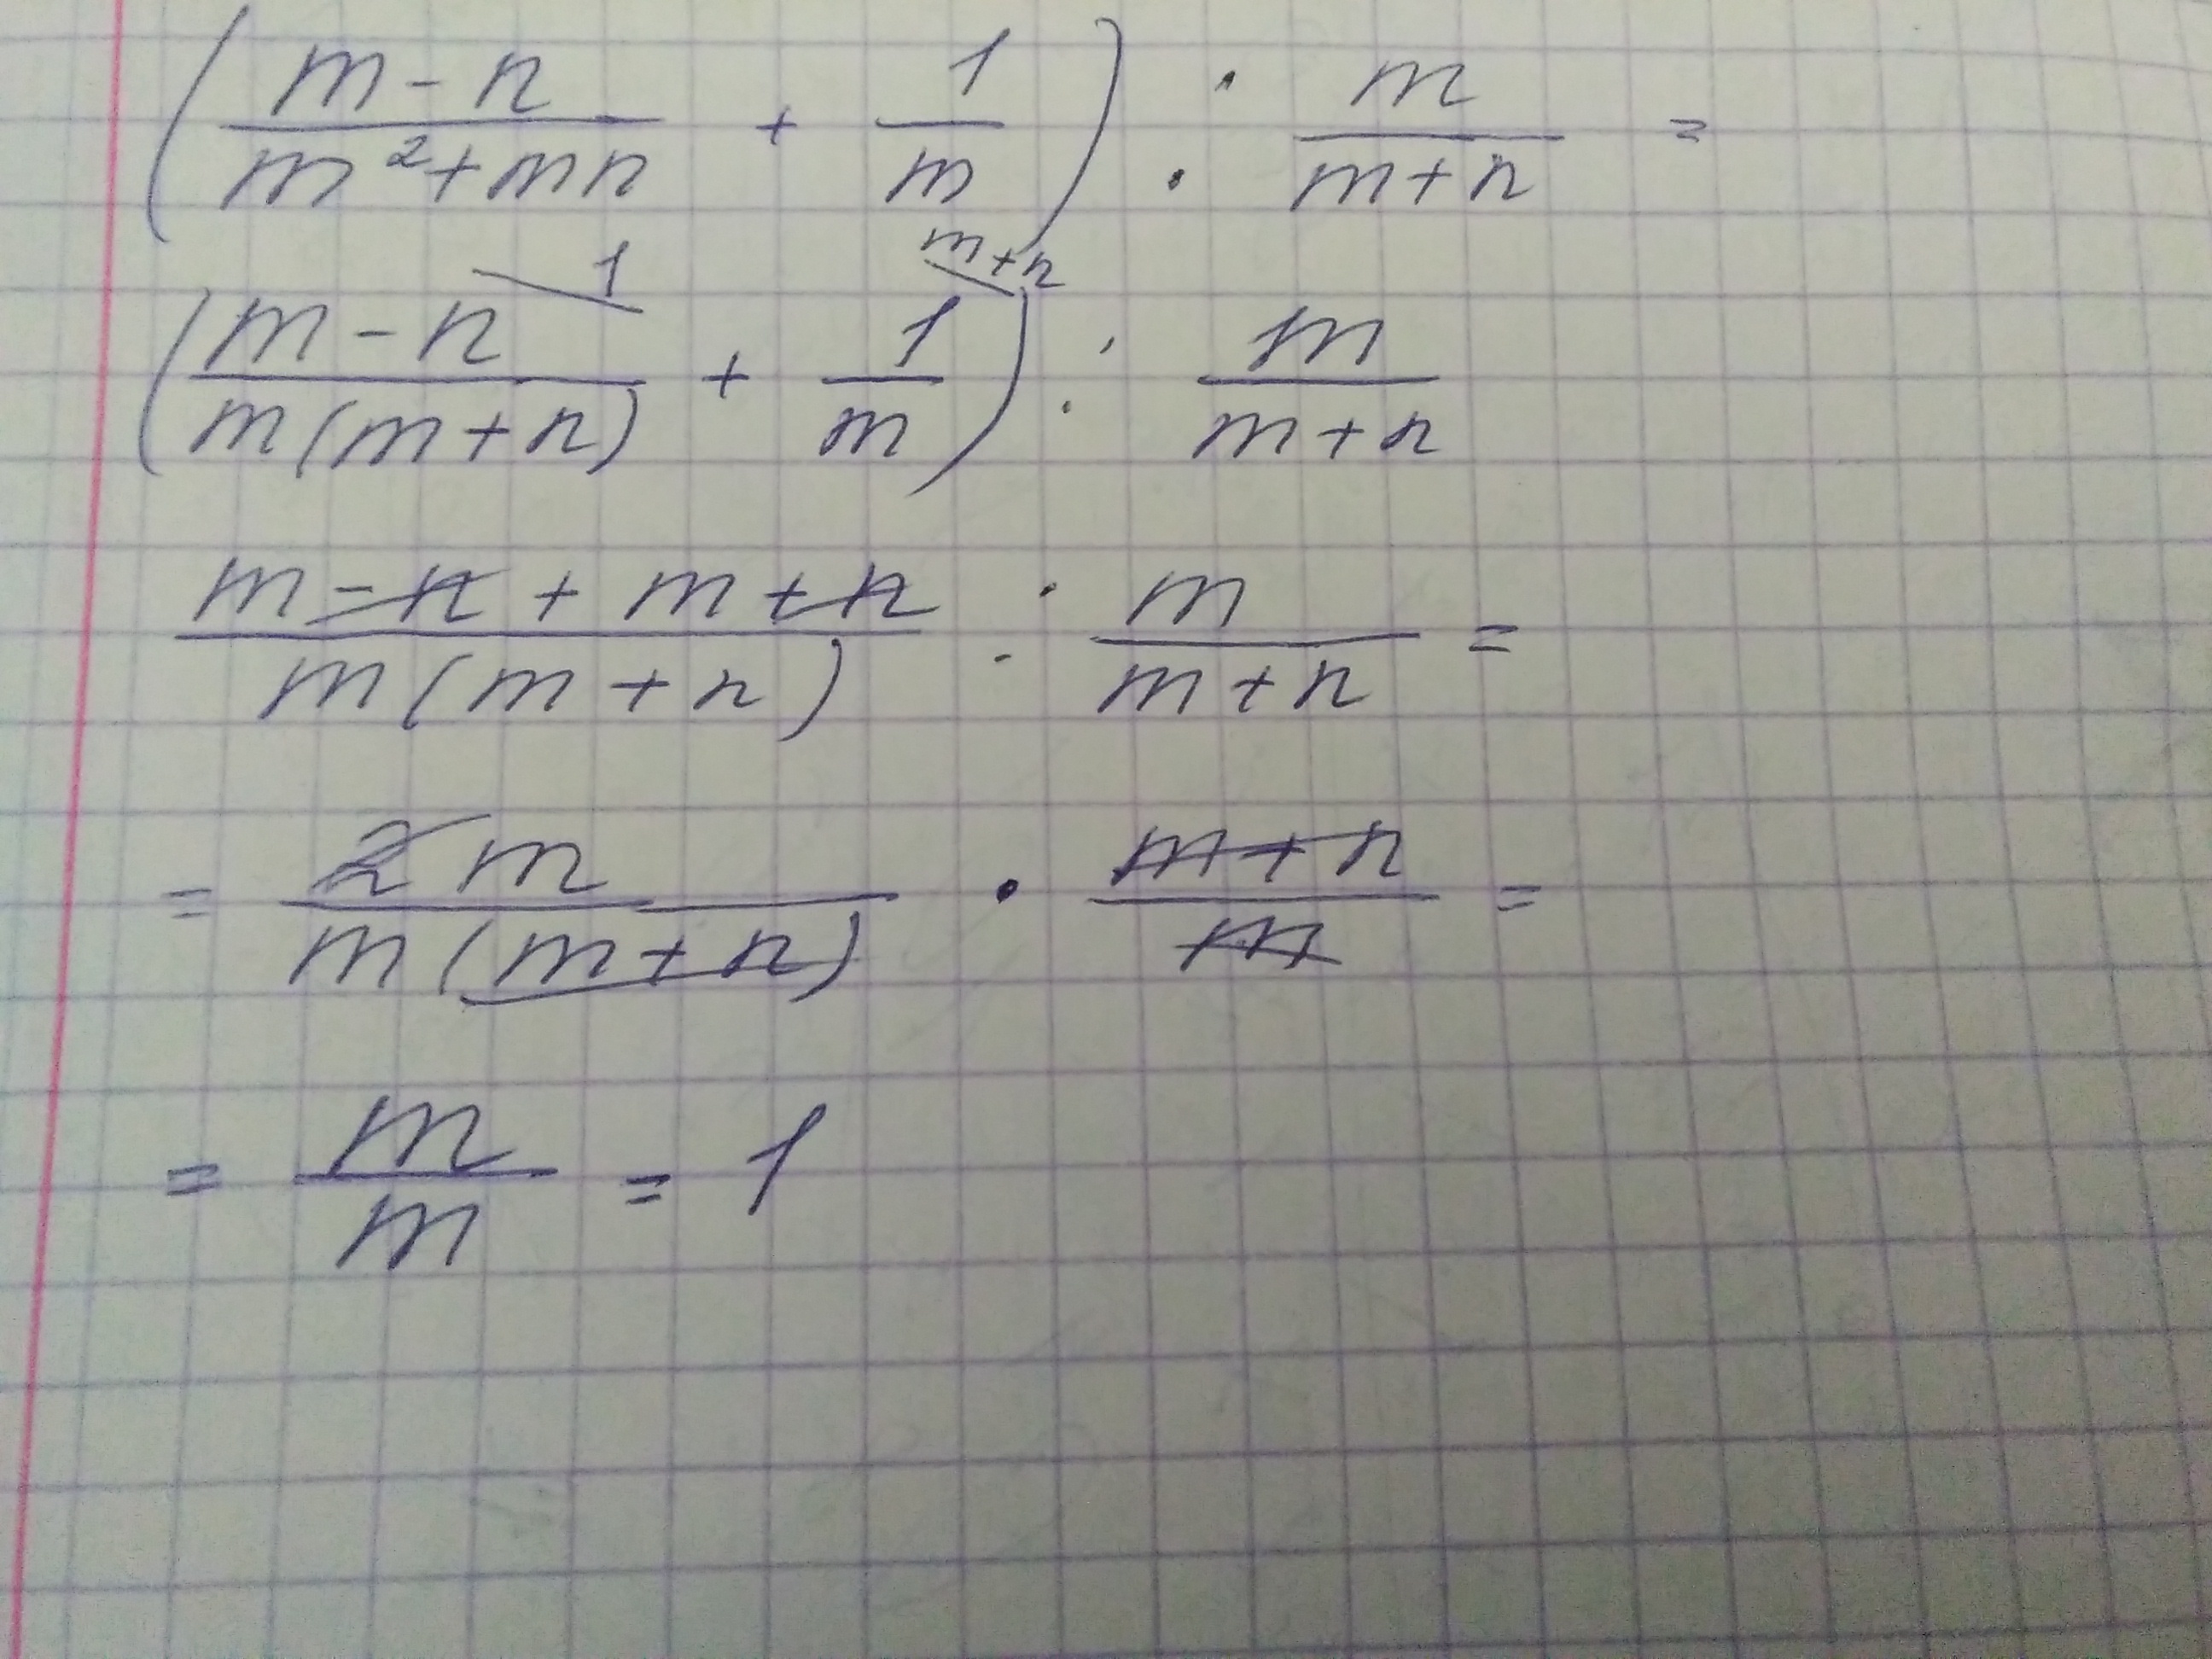 ( (m - n)/(m² + mn) + 1/m ) : m/(m + n) =
( (m - n)/(m(m + n)) \ 1 + 1/m \ m + n ) : m/(m + n)
(m - n + m + n)/(m(m + n)) : m/(m + n) =
= 2m/(m(m + n)) · (m + n)/m =
= m/m = 1